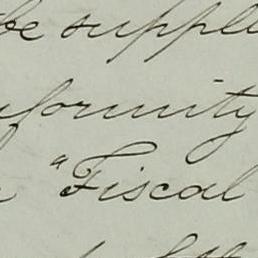 be supple
formity
"Fiscal